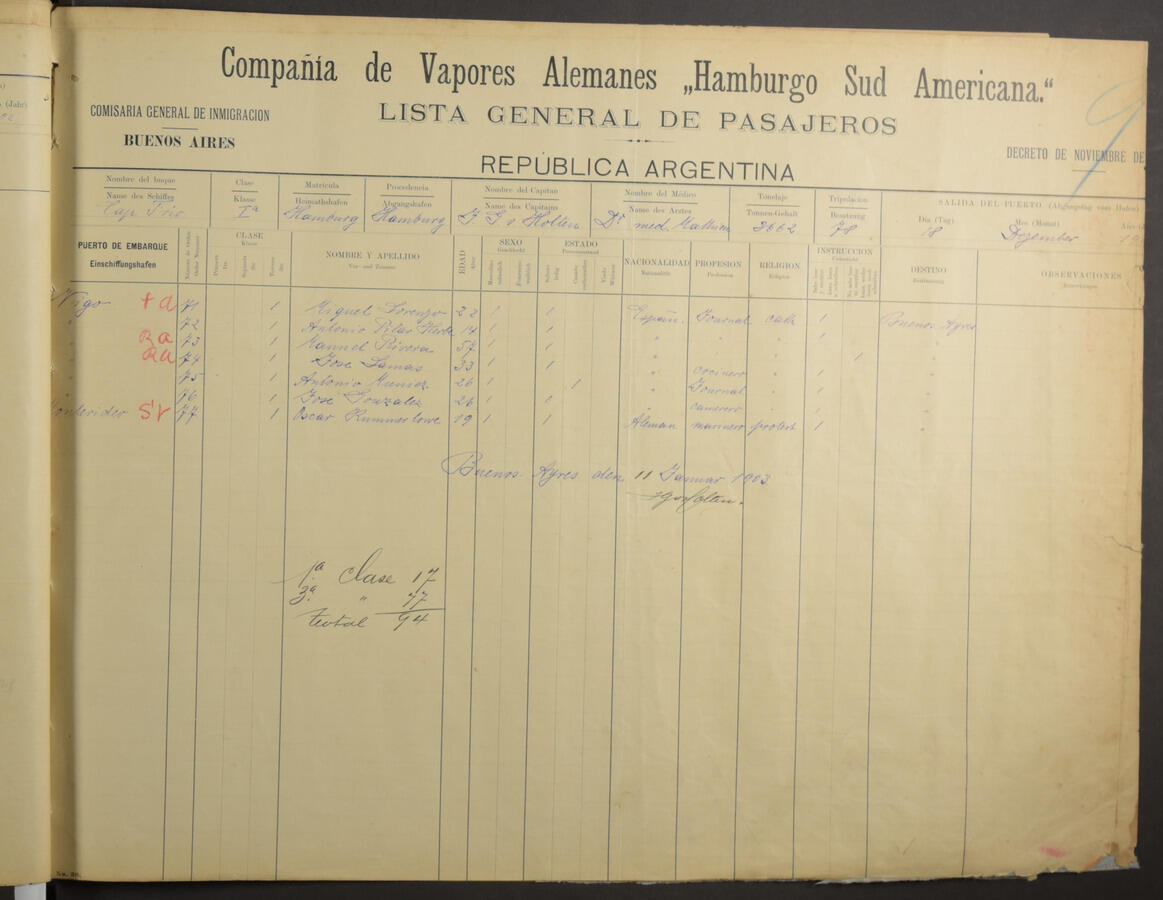 Compañía de Vapores Alemanes „Hamburgo Sud Americana.“
COMISARIA GENERAL DE INMIGRACION
BUENOS AIRES
LISTA GENERAL DE PASAJEROS
REPÚBLICA ARGENTINA
DECRETO DE NOVIEMBRE DE
9
Nombre del buque Clase Matrícula Procedencia Nombre del Capitan Nombre del Médico Tonelaje Tripulacion SALIDA DEL PUERTO (Abgangstag vom Hafen)
Name des Schiffes Klasse Heimathshafen Abgangshafen Name des Capitains Name des Arztes Tonnen-Gehalt Besatzung Dia (Tag) Mes (Monat)
Cap Frio Iª Hamburg Hamburg v Holten Dr med. 78 18 Dezember 19
PUERTO DE EMBARQUE CLASE NOMBRE Y APELLIDO EDAD SEXO ESTADO NACIONALIDAD PROFESION RELIGION INSTRUCCION DESTINO OBSERVACIONES
Einschiffungshafen Klasse Vor- und Zuname Alter Geschlecht Nationalität Profession Religion Bestimmung
Vigo + a 71 1 Miguel Lorenzo 22 1 1 Español Journal cath 1 Buenos Ayres
" 72 Antonio Pilar 14 1 1 " " " 1 "
" Ra 73 1 Manuel Rivera 57 1 1 " " " 1 "
" Ra 74 1 Jose Lamas 33 1 1 " " " 1 "
" 75 1 Antonio Muniez 26 1 1 " cocinero " 1 "
" 76 1 Jose Gonzalez 26 1 1 " Journal " 1 "
camerero
Montevideo S'r 77 1 Oscar Rummerlowe 19 1 1 Aleman marinero protest 1 "
Buenos Ayres den 11 Januar 1903
1ª Clase 17
3ª " 77
total 94